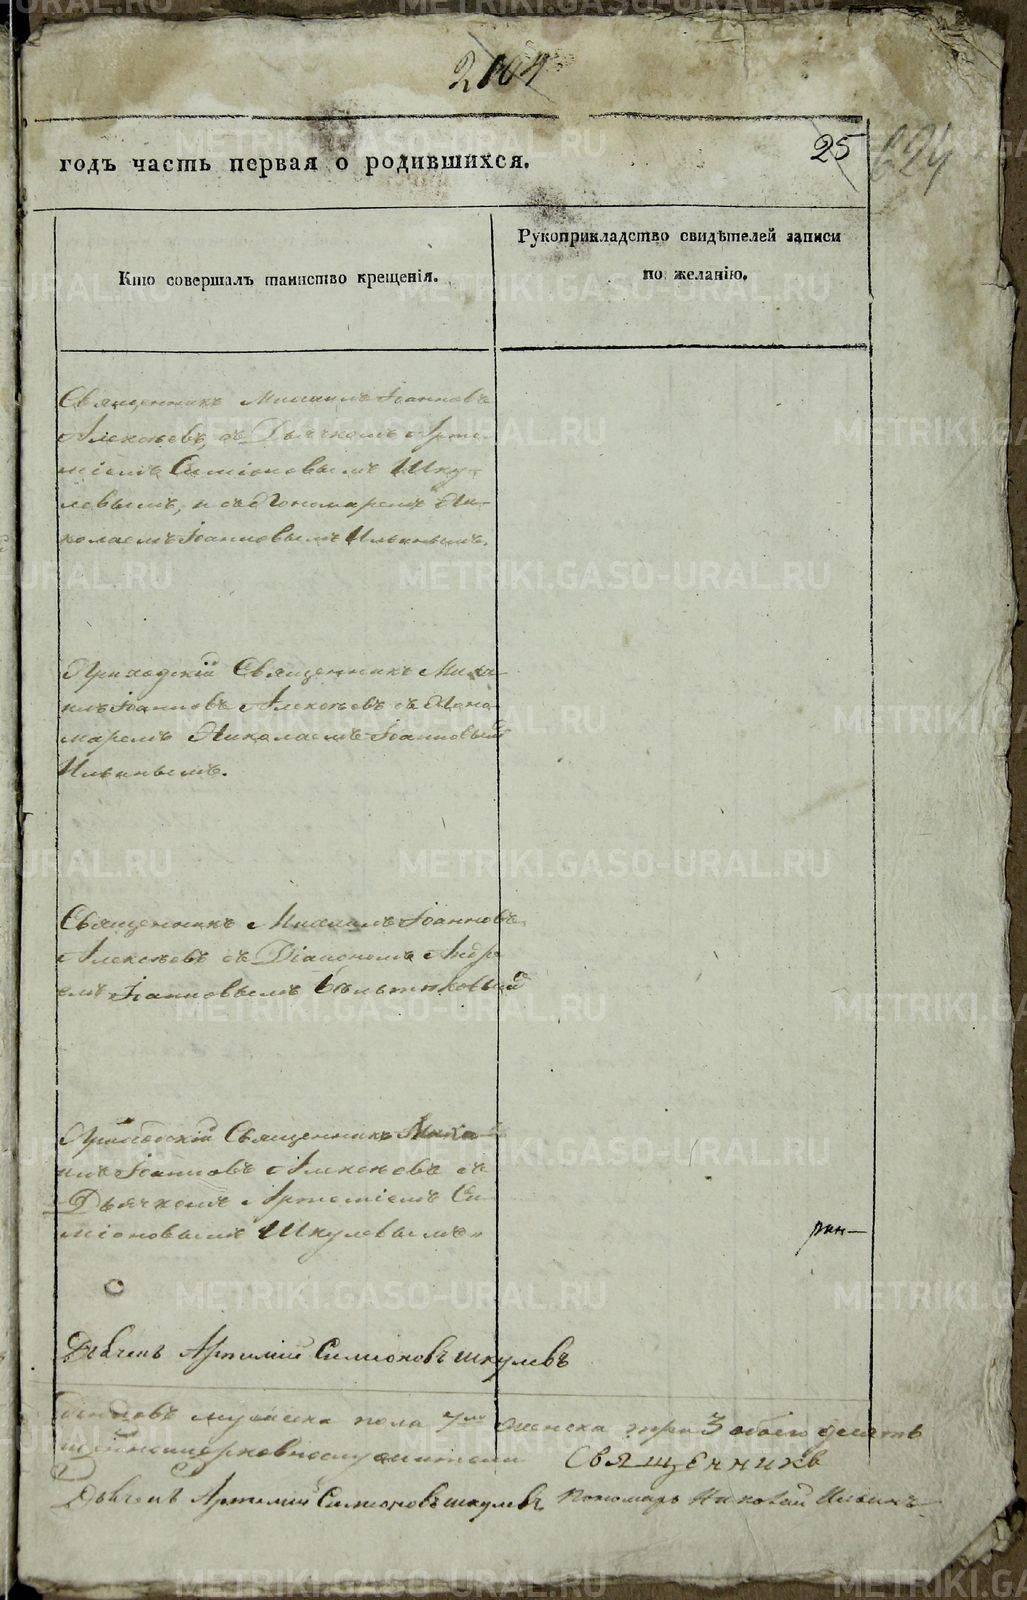 годъ часть первая о родившихся.
25
624
Кто совершалъ таинство крещенія.
Рукоприкладство свидѣтелей записи
по желанію.
Священникъ Михаилъ Іоанновъ
Алексѣевъ, съ Дьячкомъ Арте-
міемъ Симіоновымъ Шку-
левымъ, и съ Пономаремъ Ни-
колаемъ Іоанновымъ Ильинымъ.
Приходскій Священникъ Миха-
илъ Іоанновъ Алексѣевъ съ Поно-
маремъ Николаемъ Іоанновым
Ильинымъ.
Священникъ Михаилъ Іоанновъ
Алексѣевъ съ Діакономъ Андре
емъ Іоанновымъ
Приходскій Священникъ Миха-
илъ Іоанновъ Алексѣевъ съ
Дьячкомъ Артеміемъ Си-
міоновымъ Шкулевымъ
рин—
Дьячекъ Артемий Симионовъ шкулевъ
мужеска пола 7мь женска три 3 обоего десять
Священникъ
Дьячекъ Артемий Симионовъ шкулевъ Пономарь Николай Ильинъ
METRIKI.GASO-URAL.RU